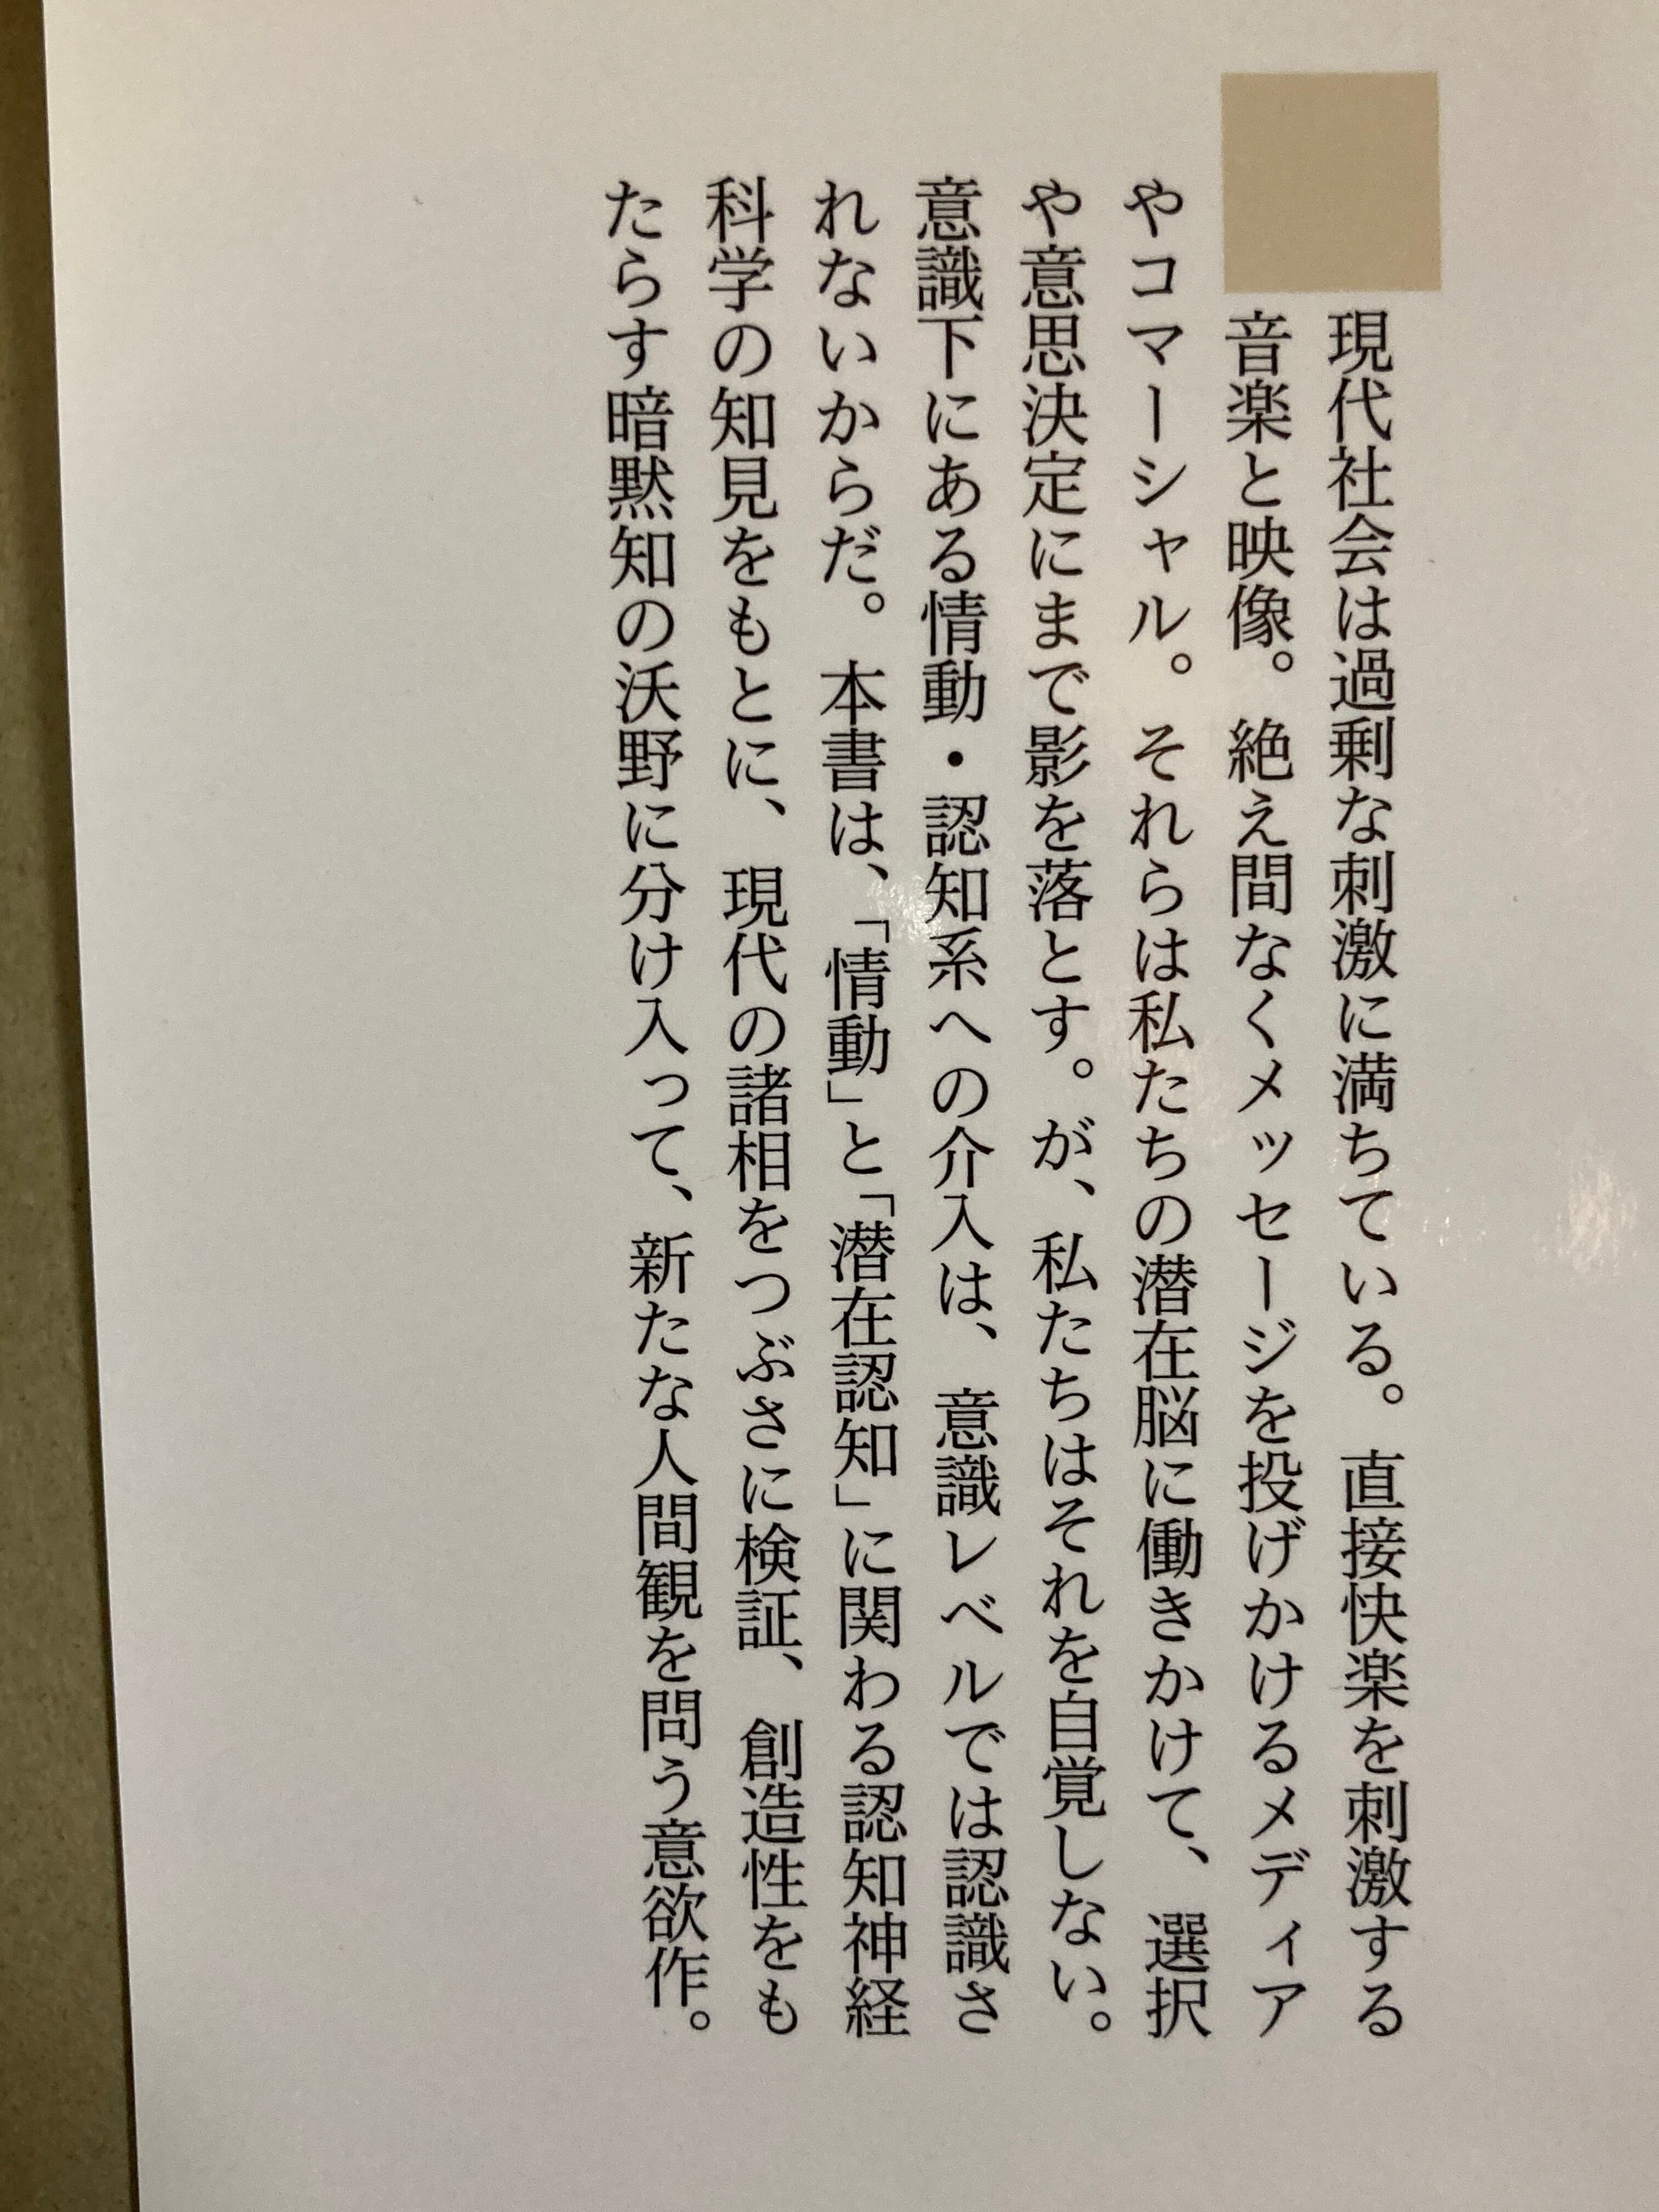 現代社会は過剰な刺激に満ちている。直接快楽を刺激する
音楽と映像。絶え間なくメッセージを投げかけるメディア
やコマーシャル。それらは私たちの潜在脳に働きかけて、選択
や意思決定にまで影を落とす。が、私たちはそれを自覚しない。
意識下にある情動・認知系への介入は、意識レベルでは認識さ
れないからだ。本書は、「情動」と「潜在認知」に関わる認知神経
科学の知見をもとに、現代の諸相をつぶさに検証、創造性をも
たらす暗黙知の沃野に分け入って、新たな人間観を問う意欲作。